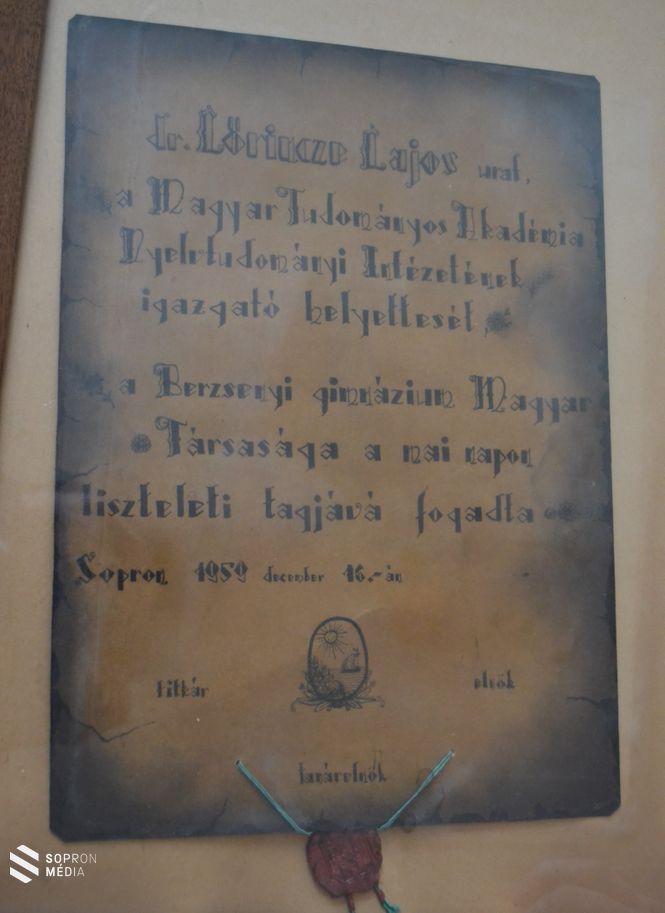 dr. Lőrincze Lajos urat,
a Magyar Tudományos Akadémia
Nyelvtudományi Intézetének
igazgató helyettesét,
a Berzsenyi gimnázium Magyar
Társasága a mai napon
tiszteleti tagjává fogadta
Sopron 1959 december 16.-án
titkár elnök
tanárelnök
SOPRON
MÉDIA